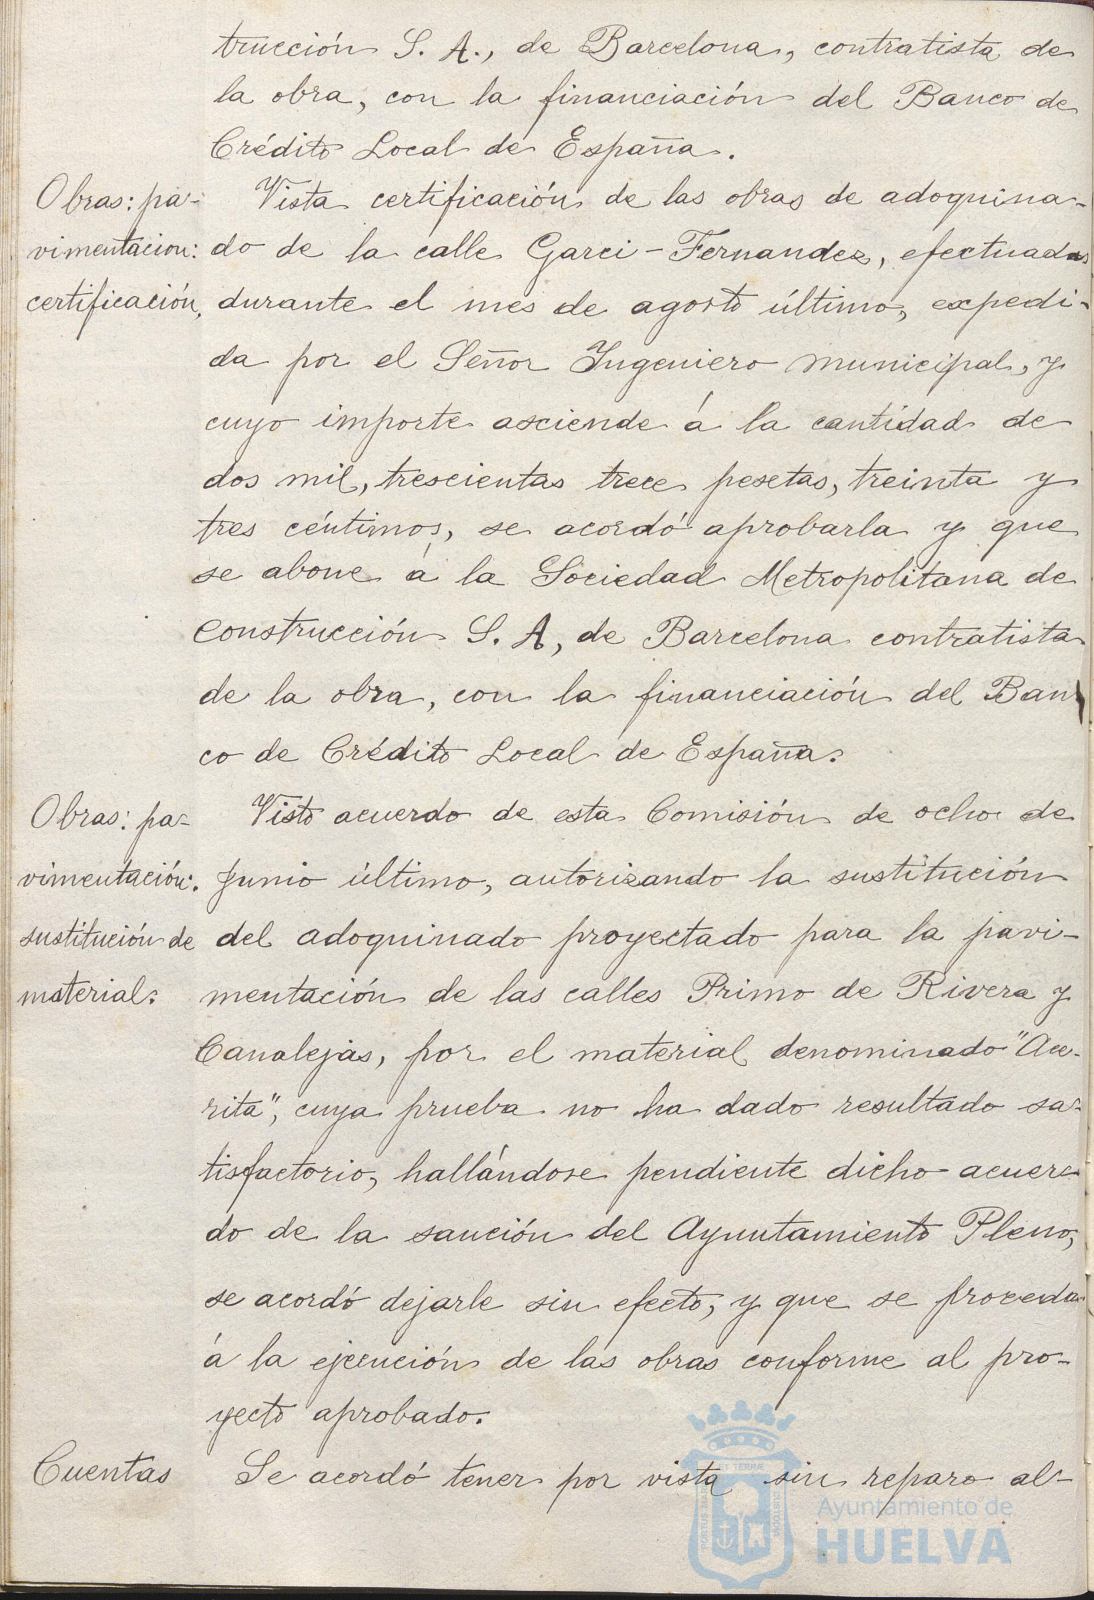 trucción S. A., de Barcelona, contratista de
la obra, con la financiación del Banco de
Crédito Local de España.
Obras: pa-
vimentacion:
certificación,
Vista certificación de las obras de adoquina-
do de la calle Garci-Fernandez, efectuadas
durante el mes de agosto último, expedi-
da por el Señor Ingeniero municipal, y
cuyo importe asciende á la cantidad de
dos mil, trescientas trece pesetas, treinta y
tres céntimos, se acordó aprobarla y que
se abone á la Sociedad Metropolitana de
Construcción S. A, de Barcelona contratista
de la obra, con la financiación del Ban
co de Crédito Local de España.
Obras: pa-
vimentación:
sustitución de
material:
Visto acuerdo de esta Comisión de ocho de
Junio último, autorizando la sustitución
del adoquinado proyectado para la pavi-
mentación de las calles Primo de Rivera y
Canalejas, por el material denominado "Ace-
rita", cuya prueba no ha dado resultado sa-
tisfactorio, hallándose pendiente dicho acuer-
do de la sanción del Ayuntamiento Pleno,
se acordó dejarle sin efecto, y que se proceda
á la ejecución de las obras conforme al pro-
yecto aprobado.
Cuentas
Se acordó tener por vista sin reparo al-
Ayuntamiento de
HUELVA